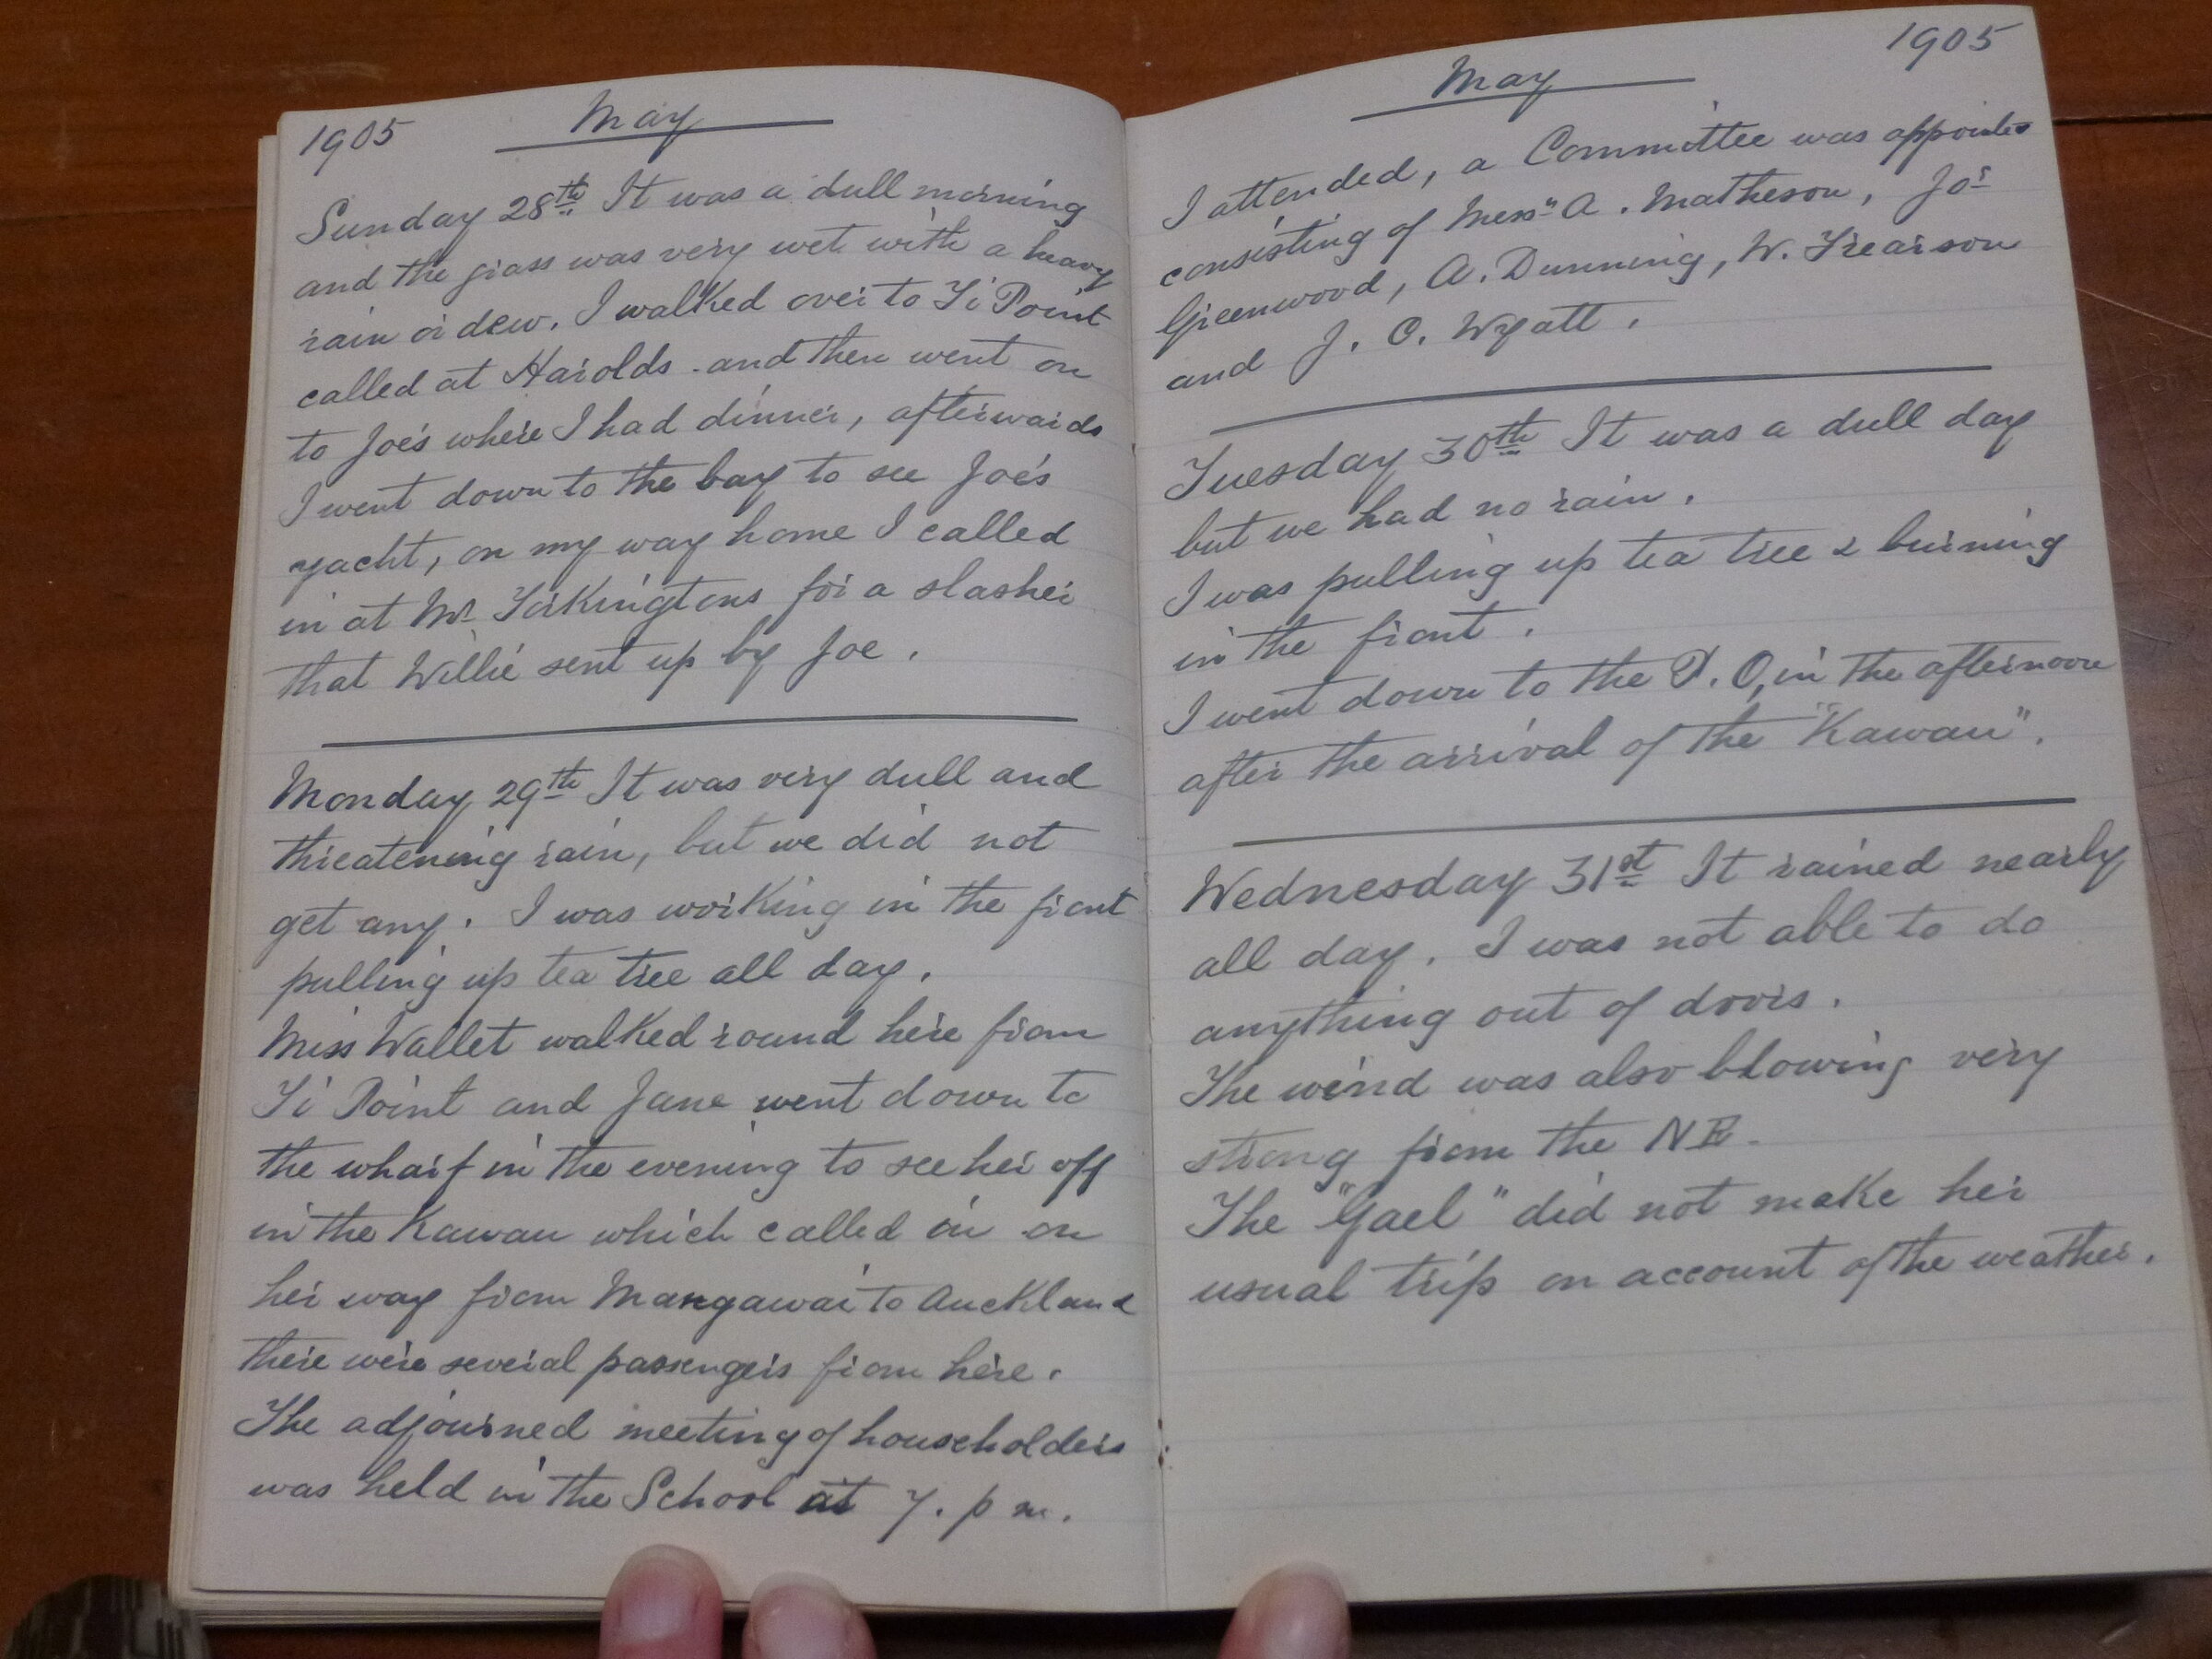 1905 May
Sunday 28th It was a dull morning
and the grass was very wet with a heavy
rain or dew. I walked over to Ti Point
called at Harolds and then went on
to Joe's where I had dinner, afterwards
I went down to the bay to see Joe's
yacht, on my way home I called
in at Mr Torkingtons for a slasher
that Willie sent up by Joe.
Monday 29th It was very dull and
threatening rain, but we did not
get any. I was working in the front
pulling up tea tree all day.
Miss Wallet walked round here from
Ti Point and Jane went down to
the wharf in the evening to see her off
in the Kawau which called in on
her way from Mangawai to Auckland
there were several passengers from here.
The adjourned meeting of householders
was held in the School at 7. p m.
May 1905
I attended, a Committee was appointed
consisting of Messrs A. Matheson, Jos
Greenwood, A. Dunning, W. Frearson
and J. O. Wyatt.
Tuesday 30th It was a dull day
but we had no rain.
I was pulling up tea tree & burning
in the front.
I went down to the P. O, in the afternoon
after the arrival of the "Kawau".
Wednesday 31st It rained nearly
all day. I was not able to do
anything out of doors.
The wind was also blowing very
strong from the NE.
The "Gael" did not make her
usual trip on account of the weather.